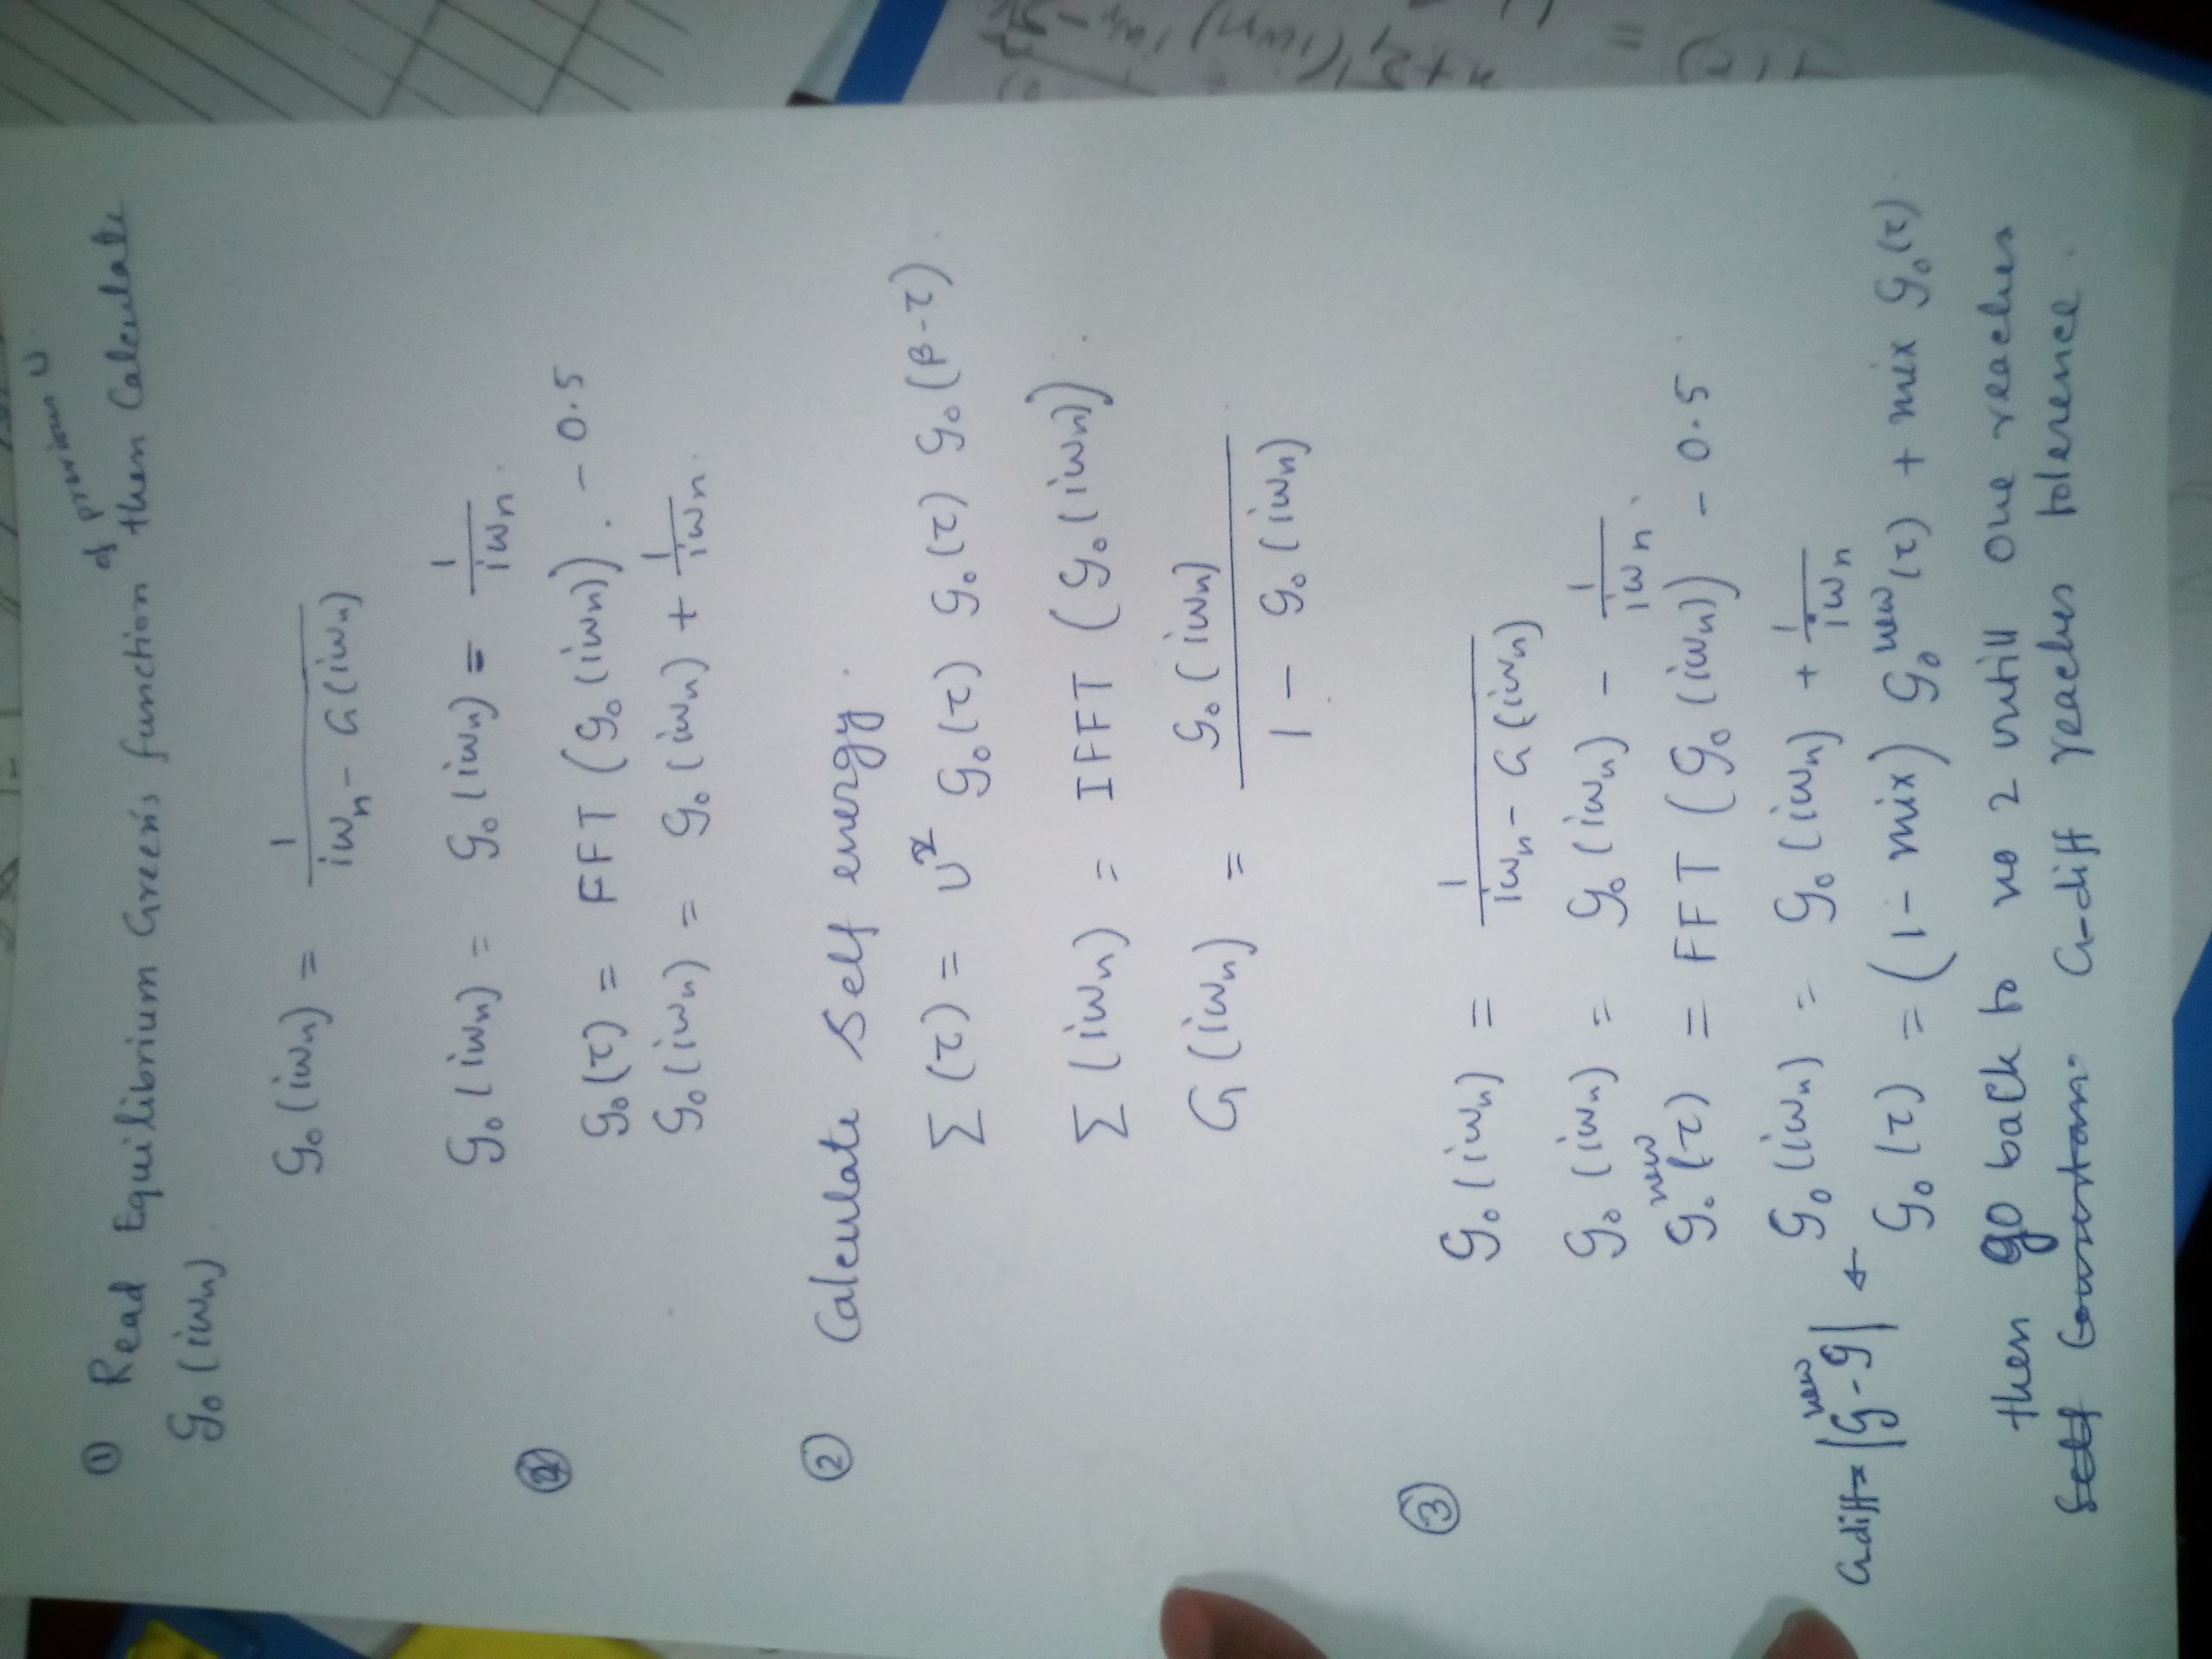 ① Read Equilibrium Green's function of previous U then Calculate
𝒢₀(iωₙ)
𝒢₀(iωₙ) = 1 / (iωₙ - G(iωₙ))
𝒢₀(iωₙ) = 𝒢₀(iωₙ) = 1 / iωₙ.
𝒢₀(τ) = FFT(𝒢₀(iωₙ)). - 0.5
𝒢₀(iωₙ) = 𝒢₀(iωₙ) + 1 / iωₙ.
② Calculate Self energy.
Σ(τ) = U² 𝒢₀(τ) 𝒢₀(τ) 𝒢₀(β-τ).
Σ(iωₙ) = IFFT(𝒢₀(iωₙ)).
G(iωₙ) = 𝒢₀(iωₙ) / (1 - 𝒢₀(iωₙ))
③
𝒢₀(iωₙ) = 1 / (iωₙ - G(iωₙ))
𝒢₀(iωₙ) = 𝒢₀(iωₙ) - 1 / iωₙ.
𝒢₀ⁿᵉʷ(τ) = FFT(𝒢₀(iωₙ)) - 0.5
𝒢₀(iωₙ) = 𝒢₀(iωₙ) + 1 / iωₙ
G-diff = |𝒢ⁿᵉʷ - 𝒢| ←
𝒢₀(τ) = (1 - mix) 𝒢₀ⁿᵉʷ(τ) + mix 𝒢₀(τ).
then go back to no 2 untill one reaches
Self G-diff reaches tolerence.